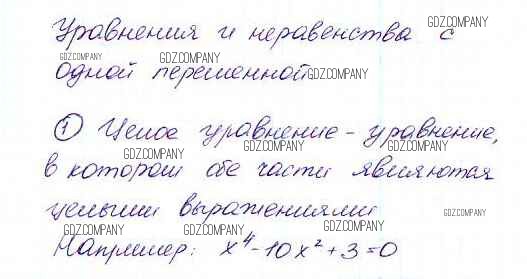 Уравнения и неравенства с
одной переменной
① Целое уравнение - уравнение,
в котором обе части являются
целыми выражениями
Например: x⁴-10x²+3=0
GDZ.COMPANY
GDZ.COMPANY
GDZ.COMPANY
GDZ.COMPANY
GDZ.COMPANY
GDZ.COMPANY
GDZ.COMPANY
GDZ.COMPANY
GDZ.COMPANY
GDZ.COMPANY
GDZ.COMPANY
GDZ.COMPANY